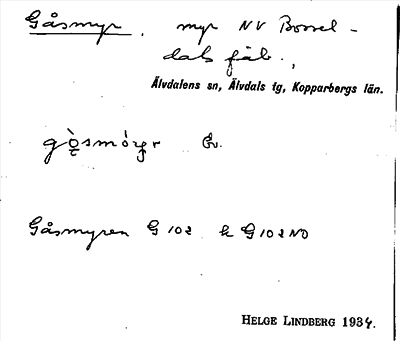 Gåsmyr. myr NV Borrel-
dals fäb.,
Älvdalens sn, Älvdals tg, Kopparbergs län.
gò̱smó̀yr Ev.
Gåsmyren G 102 k G 102 NO
HELGE LINDBERG 1934.